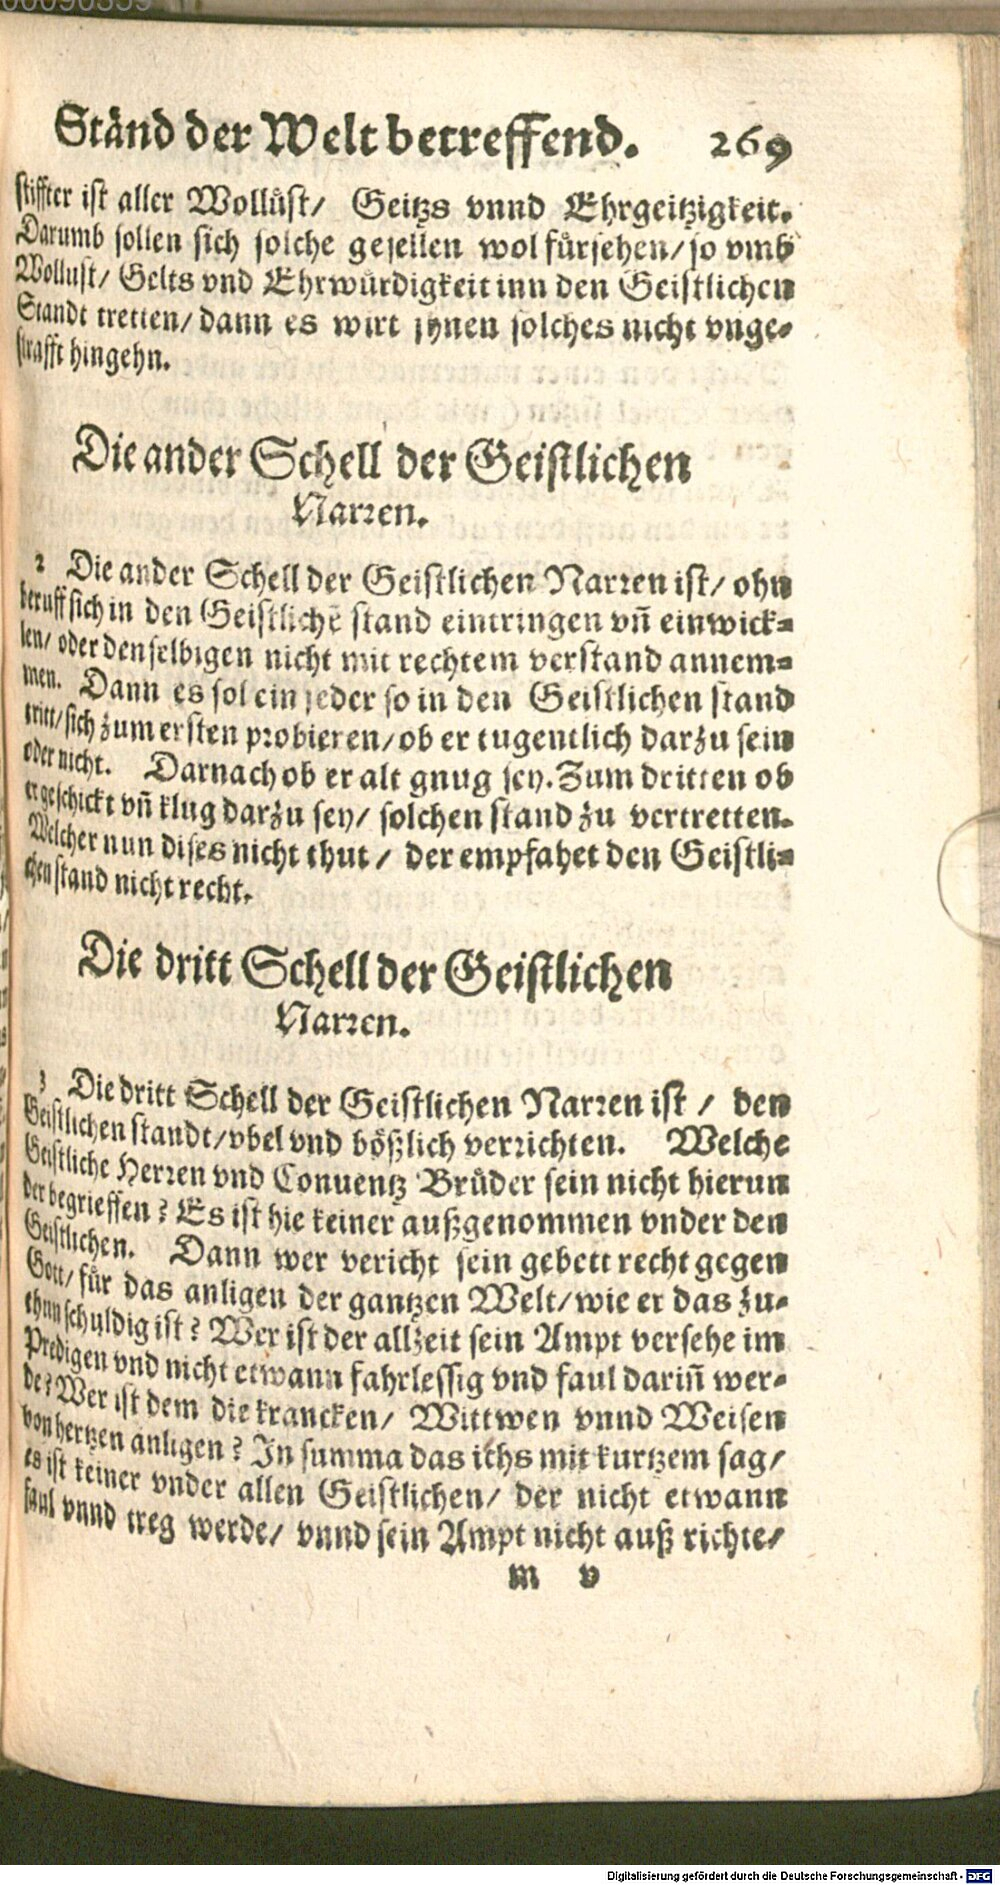 Ständ der Welt betreffend. 269
stiffter ist aller Wollůst/ Geitzs vnnd Ehrgeitzigkeit.
Darumb sollen sich solche gesellen wol fürsehen/ so vmb
Wollust/ Gelts vnd Ehrwürdigkeit inn den Geistlichen
Standt tretten/ dann es wirt jynen solches nicht vnge-
strafft hingehn.
Die ander Schell der Geistlichen
Narren.
2 Die ander Schell der Geistlichen Narren ist/ ohn
beruff sich in den Geistlichē stand eintringen vn̄ einwick-
len/ oder denselbigen nicht mit rechtem verstand annem-
men. Dann es sol ein jeder so in den Geistlichen stand
tritt/ sich zum ersten probieren/ ob er tugentlich darzu sein
oder nicht. Darnach ob er alt gnug sey. Zum dritten ob
er geschickt vn̄ klug darzu sey/ solchen stand zu vertretten.
Welcher nun dises nicht thut/ der empfahet den Geistli-
chen stand nicht recht.
Die dritt Schell der Geistlichen
Narren.
3 Die dritt Schell der Geistlichen Narren ist/ den
Geistlichen standt/ vbel vnd bößlich verrichten. Welche
Geistliche Herren vnd Conuentz Brůder sein nicht hierun
der begrieffen? Es ist hie keiner außgenommen vnder den
Geistlichen. Dann wer vericht sein gebett recht gegen
Gott/ für das anligen der gantzen Welt/ wie er das zu-
thun schuldig ist? Wer ist der allzeit sein Ampt versehe im
Predigen vnd nicht etwann fahrlessig vnd faul darin̄ wer-
de? Wer ist dem die krancken/ Wittwen vnnd Weisen
von hertzen anligen? In summa das ichs mit kurtzem sag/
es ist keiner vnder allen Geistlichen/ der nicht etwann
faul vnnd treg werde/ vnnd sein Ampt nicht auß richte/
m v
Digitalisierung gefördert durch die Deutsche Forschungsgemeinschaft - DFG